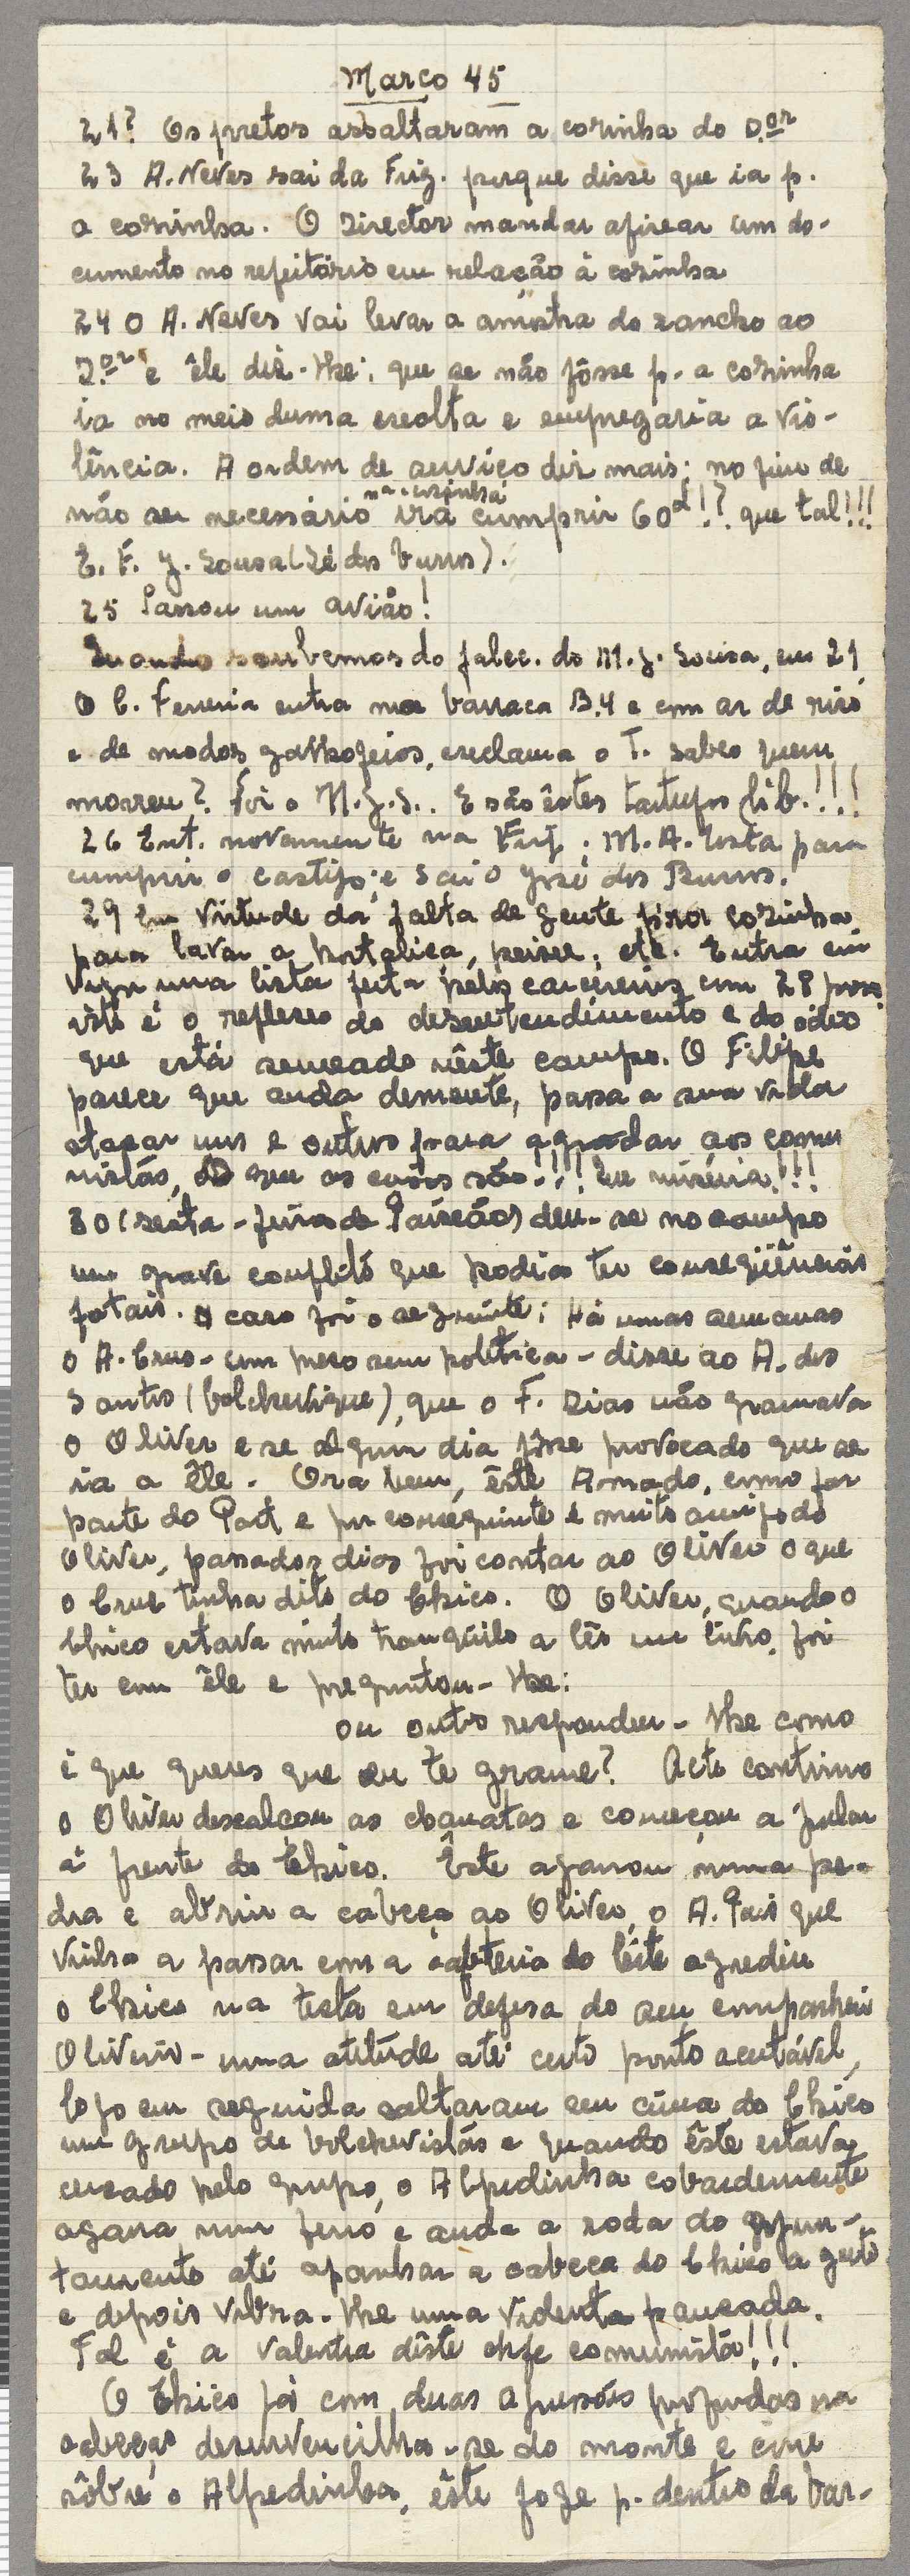 Março 45
21? Os pretos assaltaram a cozinha do D.or
23 A. Neves sai da Frig. porque disse que ia p.
a cozinha. O Director mandar afixar um do-
cumento no refeitório em relação à cozinha
24 O A. Neves vai levar a amostra do rancho ao
D.or e êle diz-lhe: que se não fôsse p. a cozinha
ia no meio duma escolta e empregaria a vio-
lência. A ordem de serviço diz mais: no fim de
não ser necessário na cozinha irá cumprir 60d!? que tal!!!
E. F. J. Sousa (Zé dos burros).
25 Passou um avião!
Quando soubemos do falec. do M. J. Sousa, em 21,
O C. Ferreira entra na barraca B.4 e com ar de riso
e de modos galhofeiros, exclama o T. sabes quem
morreu? Foi o M.J.S.. E são êstes tartufos lib.!!!
26 Ent. novamente na Frig. M. A. Costa para
cumprir o castigo; e sai o José dos Burros.
29 Em virtude da falta de gente p'ra cozinha
para lavar a hortaliça, peixe, etc. Entra em
vigor uma lista feita pelos carcereiros com 28 presos
isto é o reflexo do desentendimento e do ódio
que está semeado nêste campo. O Filipe
parece que anda demente, passa a sua vida
atacar uns e outros para agradar aos comu
nistas, O que as coisas são!!! Que miséria!!!
30 (sexta-feira da Paixão) deu-se no campo
um grave conflito que podia ter conseqüências
fatais. O caso foi o seguinte: Há umas semanas
o A. Cruz - um preso sem política - disse ao A. dos
Santos (bolchevique), que o F. Dias não gramava
o Oliver e se algum dia fôsse provocado que se
ia a êle. Ora bem, êste Amado, como faz
parte do Part e por conseguinte é muito amigo do
Oliver, passados dias foi contar ao Oliver o que
o Cruz tinha dito do Chico. O Oliver, quando o
Chico estava muito tranqüilo a lêr um livro, foi
ter com êle e preguntou-lhe:
ou outro respondeu-lhe como
é que queres que eu te grame? Acto contínuo
o Oliver descalçou as chancatas e começou a pular
à frente do Chico. Êste agarrou numa pe-
dra e abriu a cabeça ao Oliver, o A. Pais que
vinha a passar com a cafeteira do leite agrediu
o Chico na testa em defesa do seu companheiro
Oliverio - uma atitude até certo ponto aceitável,
logo em seguida saltaram em cima do Chico
um grupo de bolchevistas e quando êste estava
cercado pelo grupo, o Alpedinha cobardemente
agarra num ferro e anda a roda do ajun-
tamento até apanhar a cabeça do Chico a geito
e depois vibra-lhe uma violenta pancada.
Tal é a valentia dêste chefe comunista!!!
O Chico já com duas profundas na
cabeça, desenvencilha-se do monte e corre
sôbre o Alpedinha, êste foge p. dentro da bar-